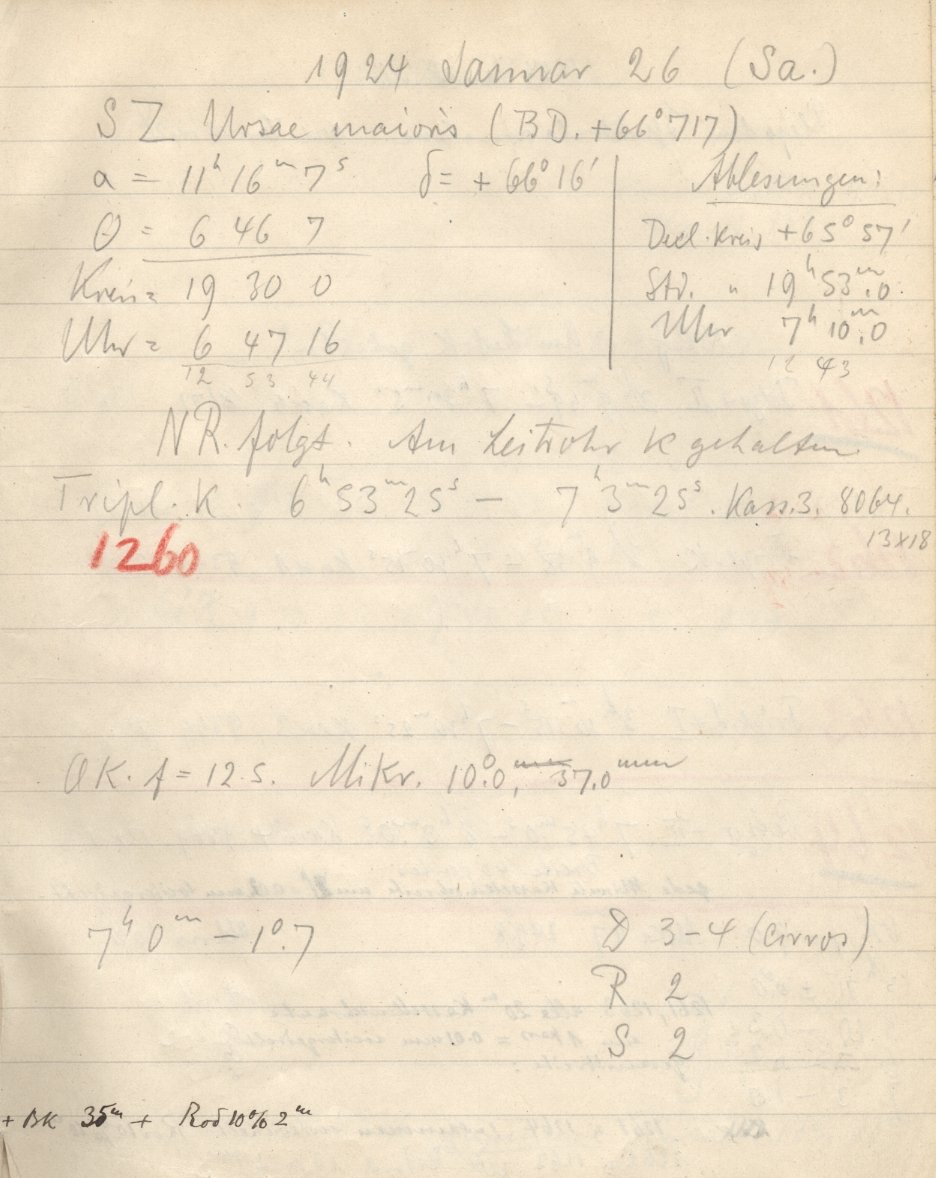 1924 Januar 26 (Sa.)
SZ Ursae maioris (BD. +66°717)
α = 11h 16m 7s δ = +66°16'
θ = 6 46 7
Kreis = 19 30 0
Uhr = 6 47 16
12 53 44
Ablesungen:
Decl. Kreis +65° 57'
Std. " 19h 53m.0
Uhr 7h 10m.0
12 43
NR. folgt. Am Leitrohr K gehalten
Tripl. K. 6h 53m 25s – 7h 3m 25s. Kass. 3. 8064.
13x18
1260
OK. f = 12.5. Mikr. 10°.0, 37.0mm
7h 0m – 1°.7
D 3-4 (Cirros)
R 2
S 2
+ BK 35m + Rod 10% 2m